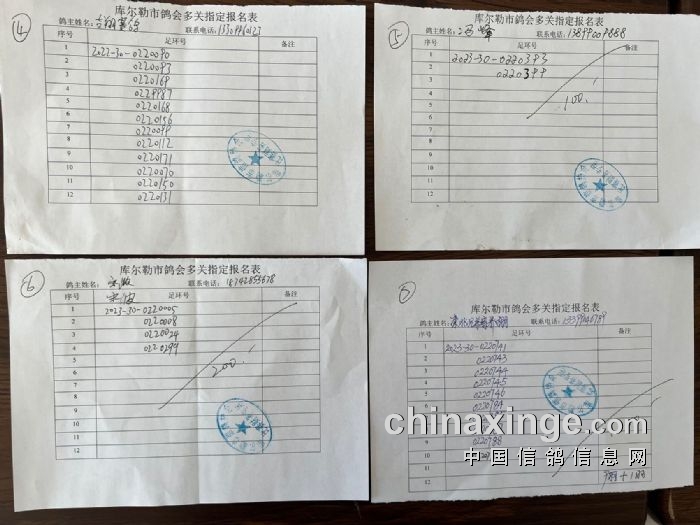 14
库尔勒市鸽会多关指定报名表
鸽主姓名:
联系电话:
序号 足环号 备注
1 2023-30-0220090
2 0220093
3 0220169
4 0229987
5 0220168
6 0220156
7 0220099
8 0220112
9 0220171
10 0220070
11 0220150
12 0220131
5
库尔勒市鸽会多关指定报名表
鸽主姓名:
联系电话: 13899009888
序号 足环号 备注
1 2023-30-0220393
2 0220399
3
4 100.
5
6
7
8
9
10
11
12
6
库尔勒市鸽会多关指定报名表
鸽主姓名:
联系电话:
序号 足环号 备注
1 2023-30-0220005
2 0220008
3 0220024
4 0220299
5 200.
6
7
8
9
10
11
12
库尔勒市鸽会多关指定报名表
鸽主姓名:
联系电话:
序号 足环号 备注
1 2023-30-0220741
2 0220743
3 0220744
4 0220745
5 0220746
6 0220794
9 0220788
10
11
12
chinaxinge.com
中国信鸽信息网